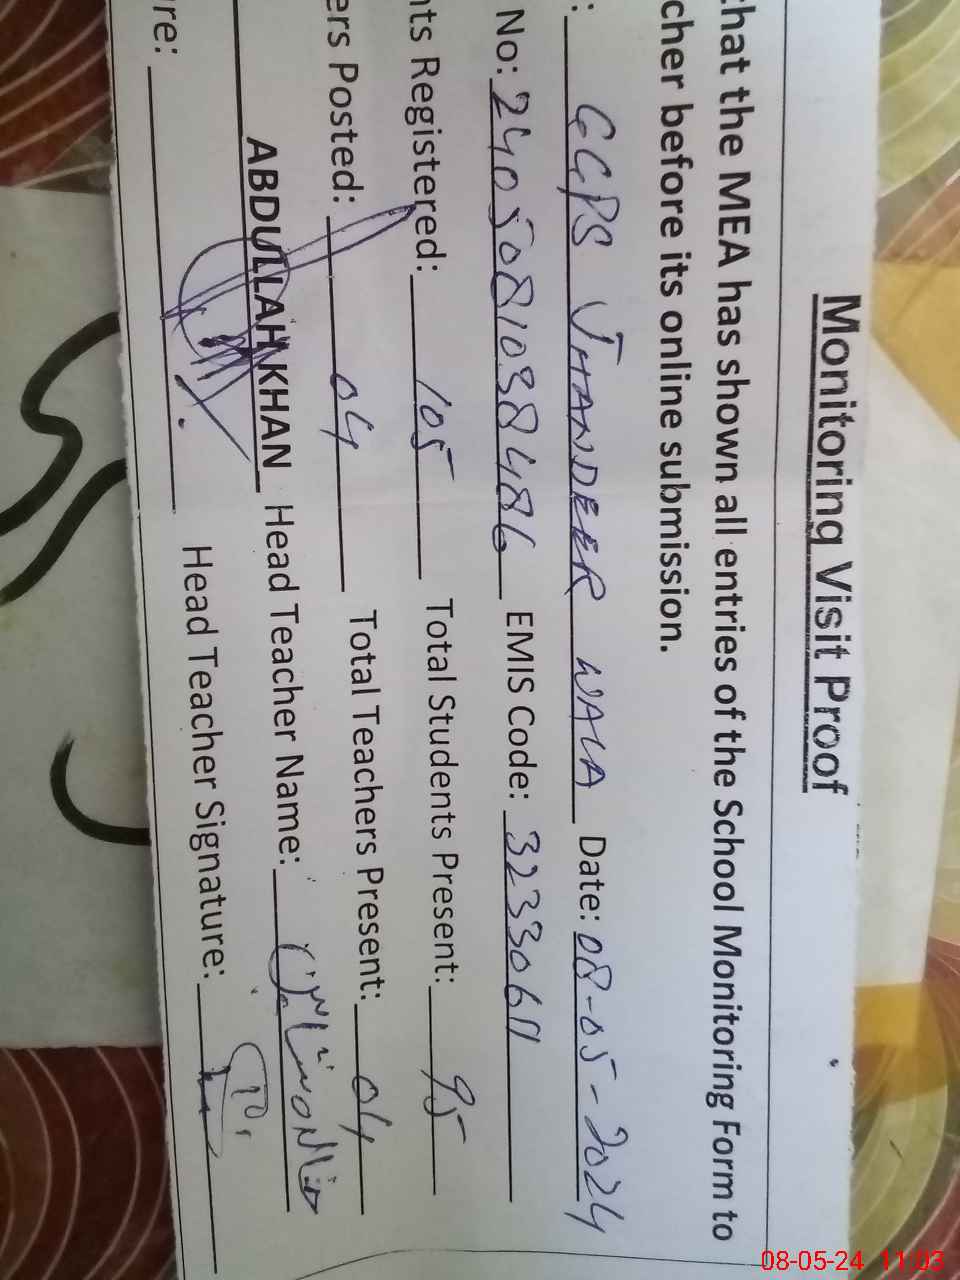 Monitoring Visit Proof
that the MEA has shown all entries of the School Monitoring Form to
cher before its online submission.
: GGPS JHANDEER WALA Date: 08-05-2024
No: 2405081038486 EMIS Code: 32330611
nts Registered: 105 Total Students Present: 95
ers Posted: 04 Total Teachers Present: 04
ABDULLAH KHAN Head Teacher Name:
re: Head Teacher Signature:
08-05-24 11:03